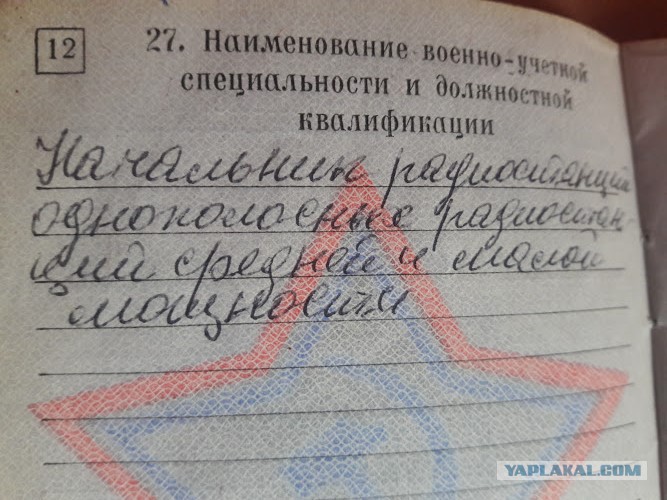 12
27. Наименование военно-учетной
специальности и должностной
квалификации
Начальник радиостанций
однополосных радиостан-
ций средней и малой
мощности
YAPLAKAL.COM